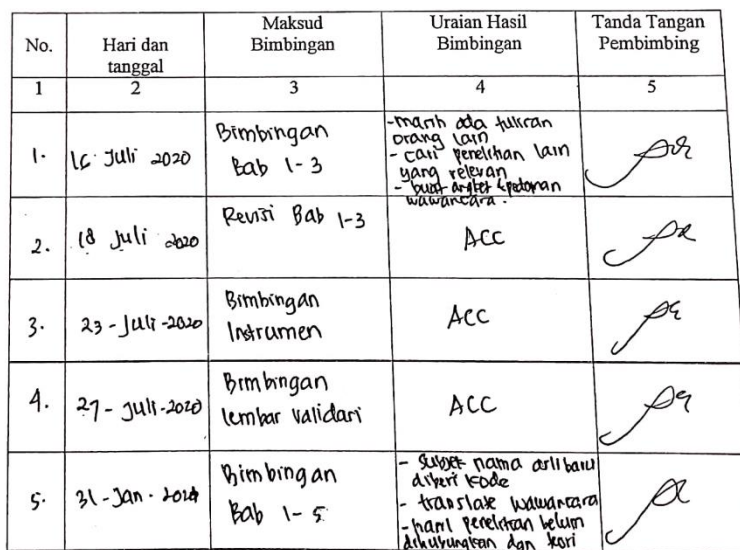 No.
Hari dan
tanggal
Maksud
Bimbingan
Uraian Hasil
Bimbingan
Tanda Tangan
Pembimbing
1
2
3
4
5
1.
16 Juli 2020
Bimbingan
Bab 1-3
- masih ada tulisan
orang lain
- cari penelitian lain
yang relevan
- buat angket & pedoman
wawancara.
2.
18 Juli 2020
Revisi Bab 1-3
ACC
3.
23 - Juli - 2020
Bimbingan
Instrumen
ACC
4.
27 - Juli - 2020
Bimbingan
lembar validasi
ACC
5.
31 - Jan -
Bimbingan
Bab 1-5
- Subjek nama asli baru
diberi kode
- translate wawancara
- hasil penelitian belum
dihubungkan dan teori